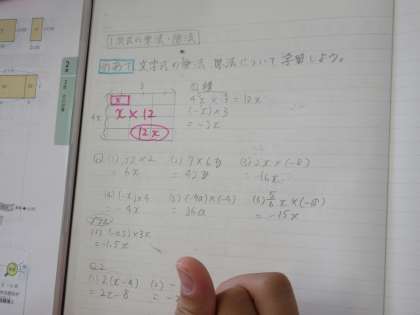 1次式の乗法・除法
めあて 文字式の乗法 除法について 学習しよう。
x
3
4x
x × 12
12x
4x × 3 = 12x
(-x) × 3
= -3x
(2) 7 × 6y
(3) 2x × (-8)
= 6x
= 42y
= -16x
(4) (-x) × 4
(5) (-9a) × (-4)
(6) 5/6 x × (-18)
= -4x
= 36a
= -15x
= -1.5x
Q2
(1) 2(x - 4)
(2) -
= 2x - 8